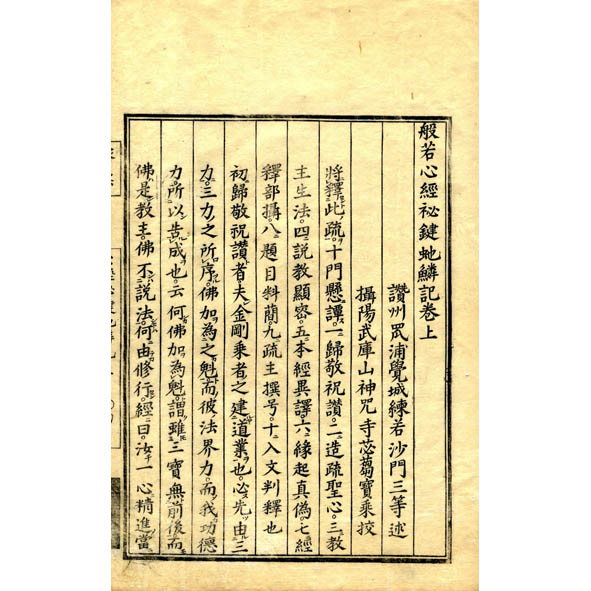 般若心經祕鍵虵鱗記卷上
讚州眾浦覺城練若沙門三等述
攝陽武庫山神咒寺苾蒭寶乘挍
將釋此疏十門懸譚一歸敬祝讚二造疏聖心三教
主生法四說教顯密五本經異譯六緣起真偽七經
釋部攝八題目料蕳九疏主撰号十入文判釋也
初歸敬祝讚者夫金剛乘者之建道業也必先由三
力三力之所序佛加為之魁而彼法界力而我功德
力所以告成也云何佛加為魁謂雖三寶無前後而
佛是教主佛不說法何由修行經曰汝一心精進當